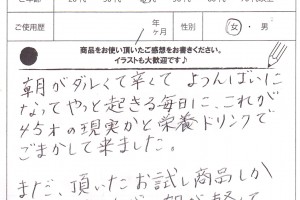 ご使用歴
年
ヶ月
性別
女・男
商品をお使い頂いたご感想をお書きください。
イラストも大歓迎です♪
朝がダルくて辛くて よつんばいに
なってやっと起きる毎日に、これが
45才の現実かと栄養ドリンクで
ごまかして来ました。
まだ、頂いたお試し商品しか